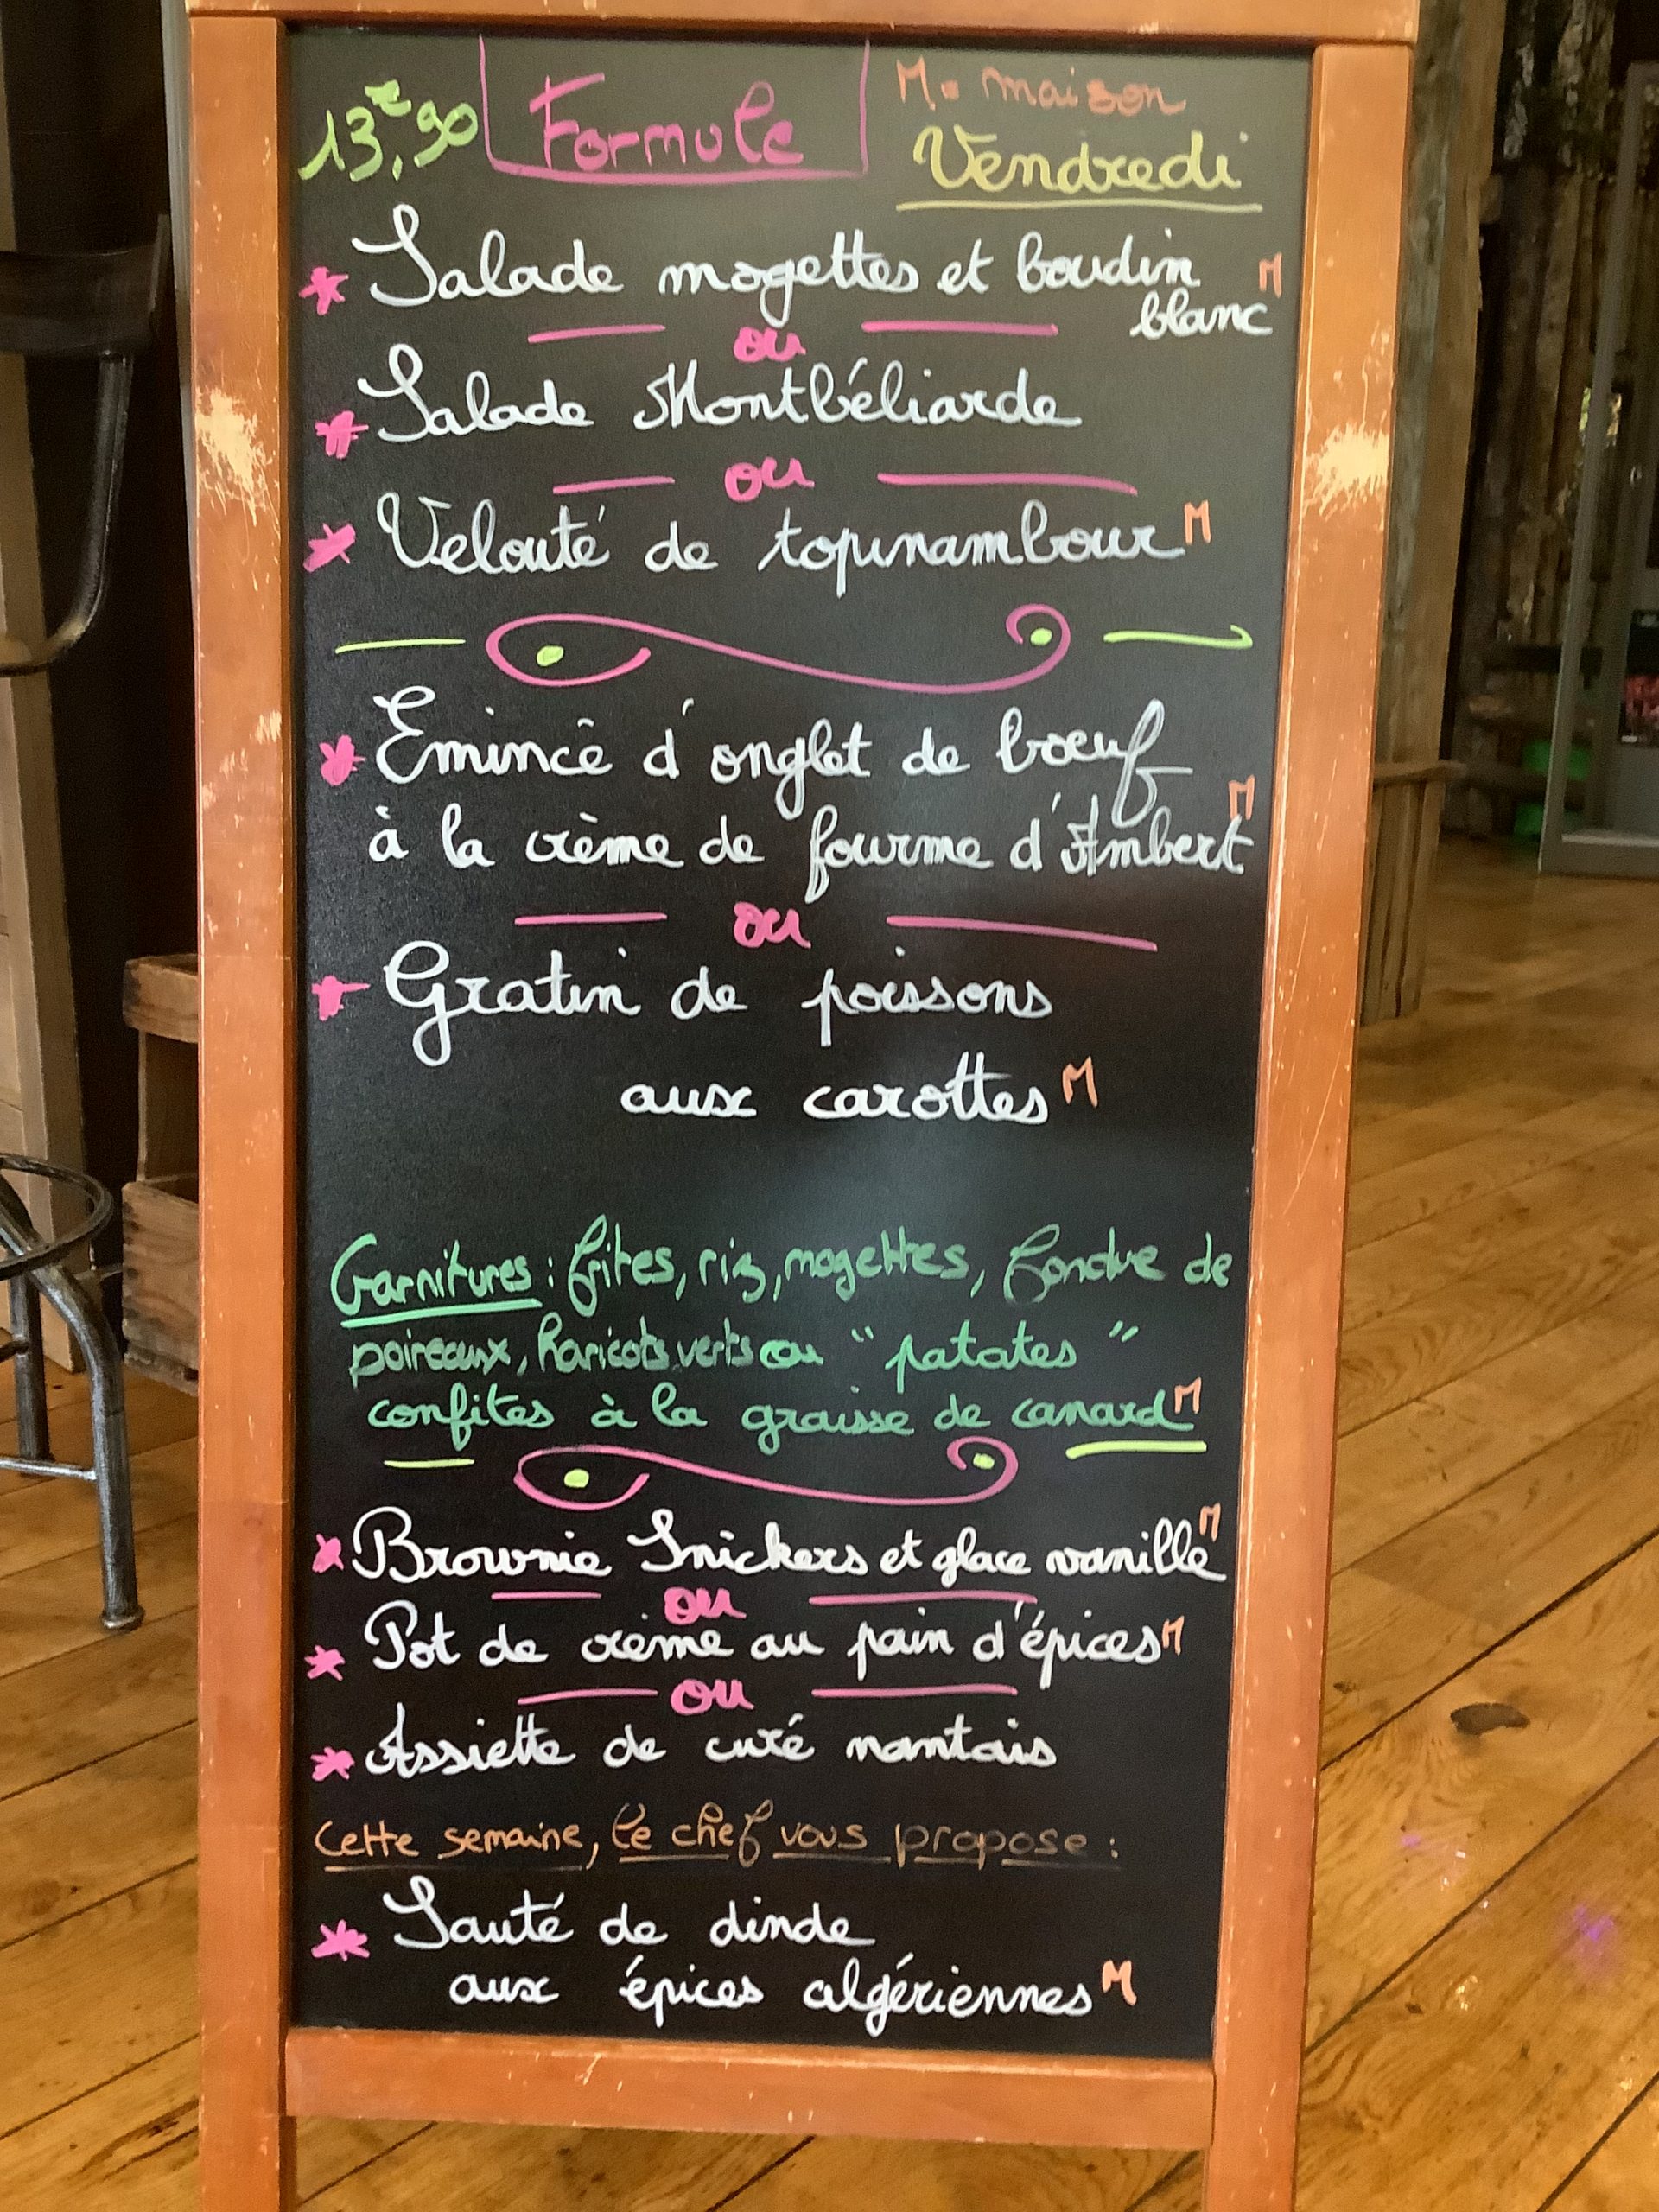 13,€90 Formule M= maison
Vendredi
* Salade mogettes et boudin M
blanc
ou
* Salade Montbéliarde
ou
* Velouté de topinambour M
* Emincé d'onglet de bœuf
à la crème de fourme d'Ambert M
ou
* Gratin de poissons
aux carottes M
Garnitures : frites, riz, mogettes, fondue de
poireaux, haricots verts ou "patates"
confites à la graisse de canard M
* Brownie Snickers et glace vanille M
ou
* Pot de crème au pain d'épices M
ou
* Assiette de curé nantais
Cette semaine, le chef vous propose :
* Sauté de dinde
aux épices algériennes M